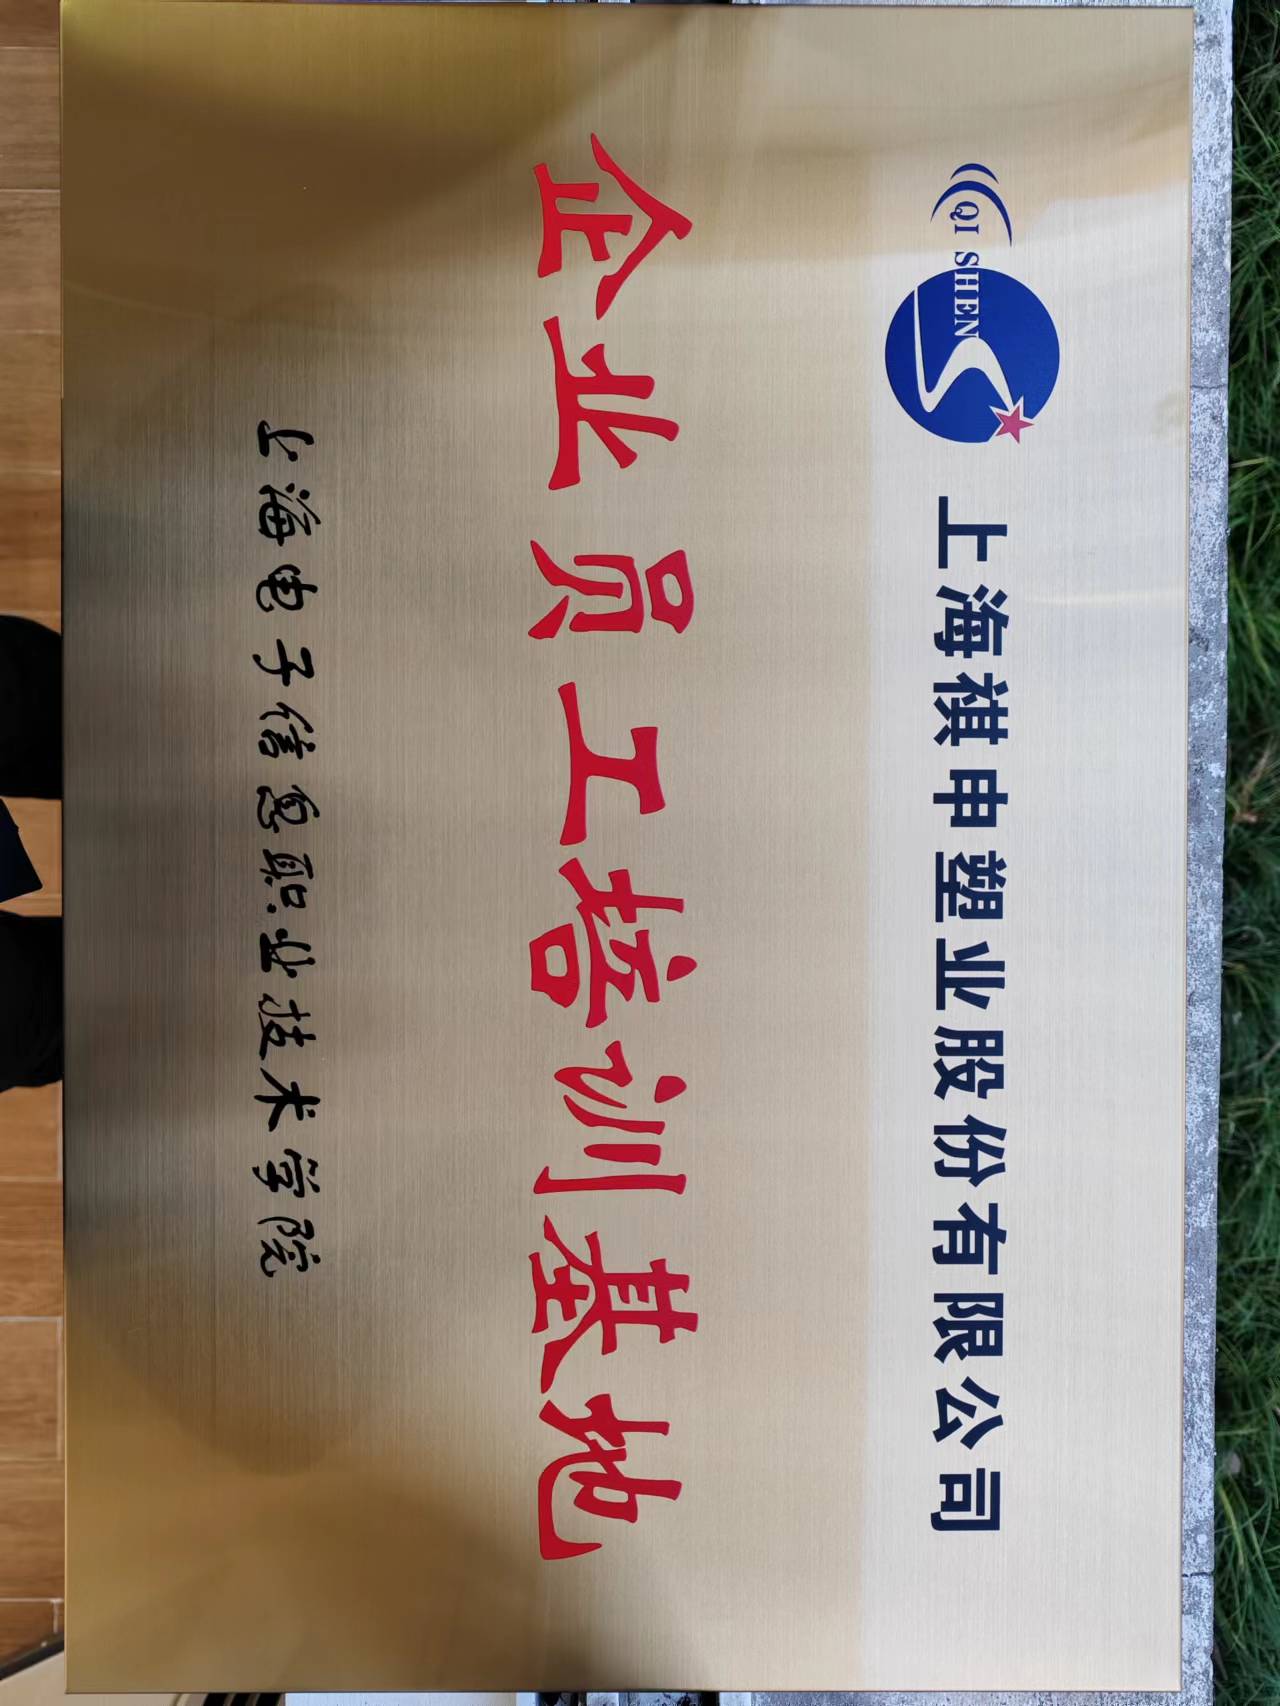 QI SHEN
上海祺申塑业股份有限公司
企业员工培训基地
上海电子信息职业技术学院